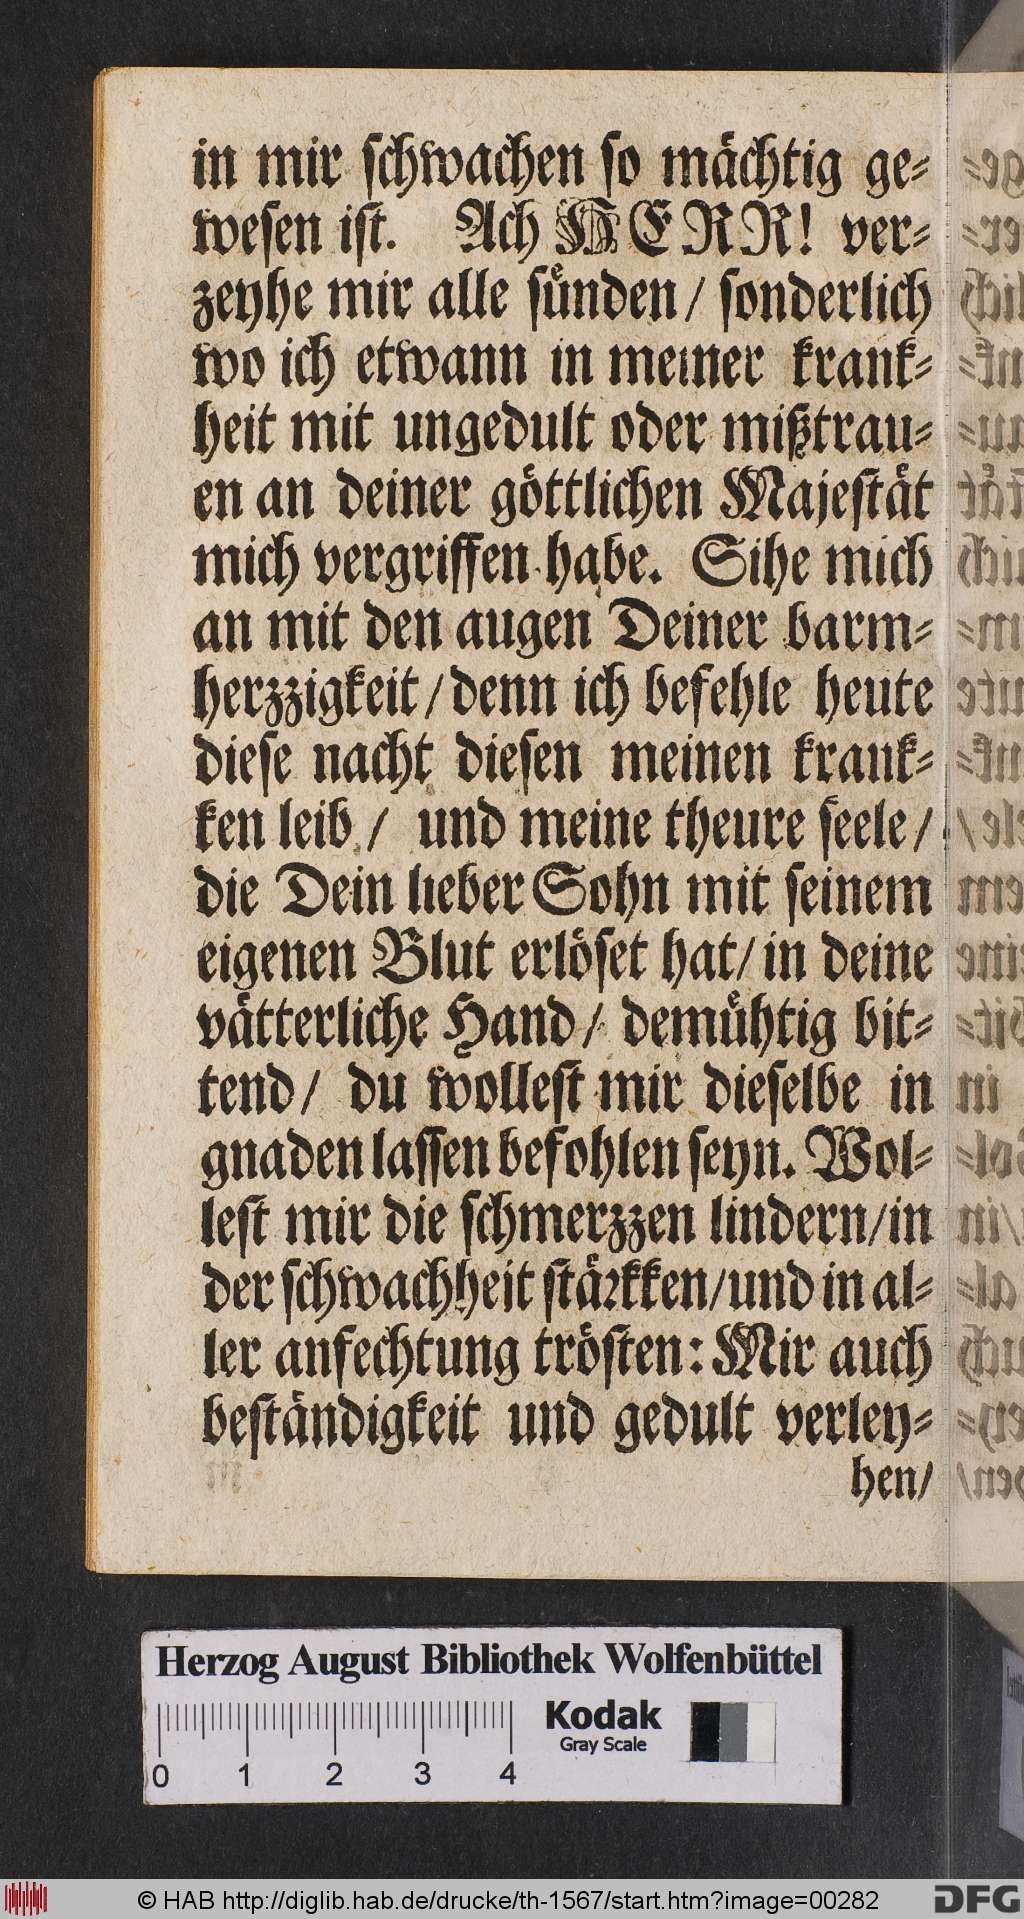 in mir schwachen so mächtig ge-
wesen ist. Ach HERR! ver-
zeyhe mir alle sünden/ sonderlich
wo ich etwann in meiner krank-
heit mit ungedult oder mißtrau-
en an deiner göttlichen Majestät
mich vergriffen habe. Sihe mich
an mit den augen Deiner barm-
herzzigkeit/ denn ich befehle heute
diese nacht diesen meinen krank-
ken leib/ und meine theure seele/
die Dein lieber Sohn mit seinem
eigenen Blut erlöset hat/ in deine
vätterliche Hand/ demühtig bit-
tend/ du wollest mir dieselbe in
gnaden lassen befohlen seyn. Wol-
lest mir die schmerzzen lindern/ in
der schwachheit stärkken/ und in al-
ler anfechtung trösten: Mir auch
beständigkeit und gedult verley-
hen/
Herzog August Bibliothek Wolfenbüttel
Kodak
Gray Scale
0 1 2 3 4
© HAB http://diglib.hab.de/drucke/th-1567/start.htm?image=00282
DFG